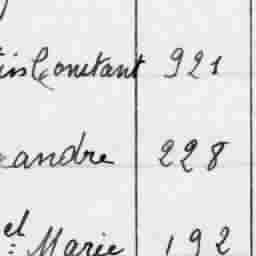 Constant 921
andre 228
el Marie 192